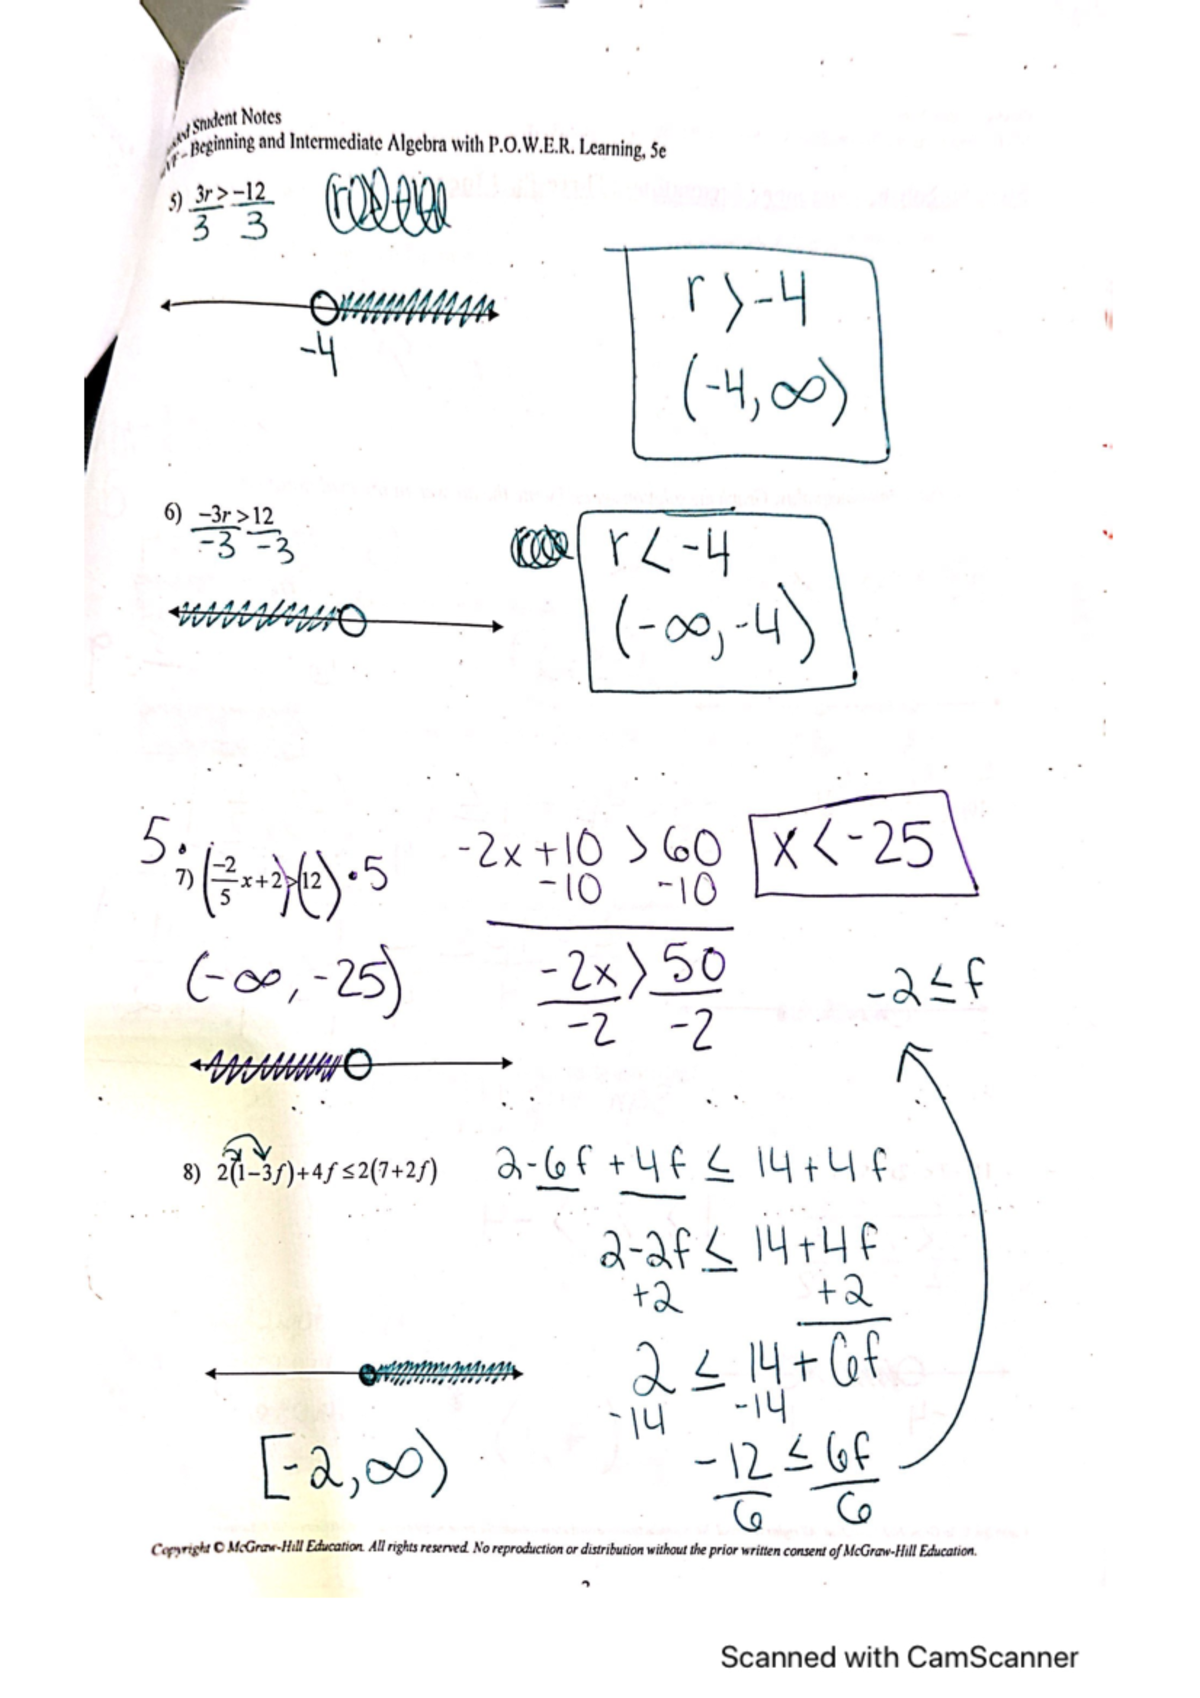 Student Notes
Beginning and Intermediate Algebra with P.O.W.E.R. Learning, 5e
5) 3r > -12
3 3
-4
r > -4
(-4, ∞)
6) -3r > 12
-3 -3
r < -4
(-∞, -4)
5 •
7) (-2/5 x + 2) > (12) • 5
-2x + 10 > 60
-10 -10
x < -25
(-∞, -25)
-2x > 50
-2 -2
-2 ≤ f
8) 2(1-3f)+4f ≤ 2(7+2f)
2-6f + 4f ≤ 14+4f
2-2f ≤ 14+4f
+2 +2
2 ≤ 14 + 6f
-14 -14
-12 ≤ 6f
6 6
[-2, ∞)
Copyright © McGraw-Hill Education. All rights reserved. No reproduction or distribution without the prior written consent of McGraw-Hill Education.
Scanned with CamScanner